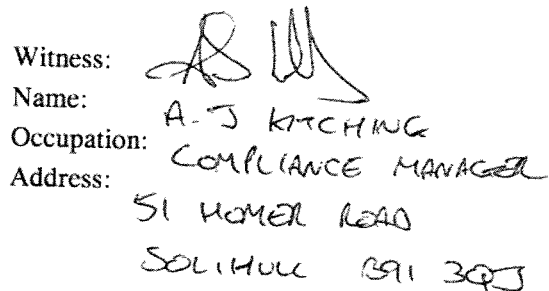 Witness:
Name: A-J KITCHING
Occupation: COMPLIANCE MANAGER
Address:
51 HOMER ROAD
SOLIHULL B91 3QJ